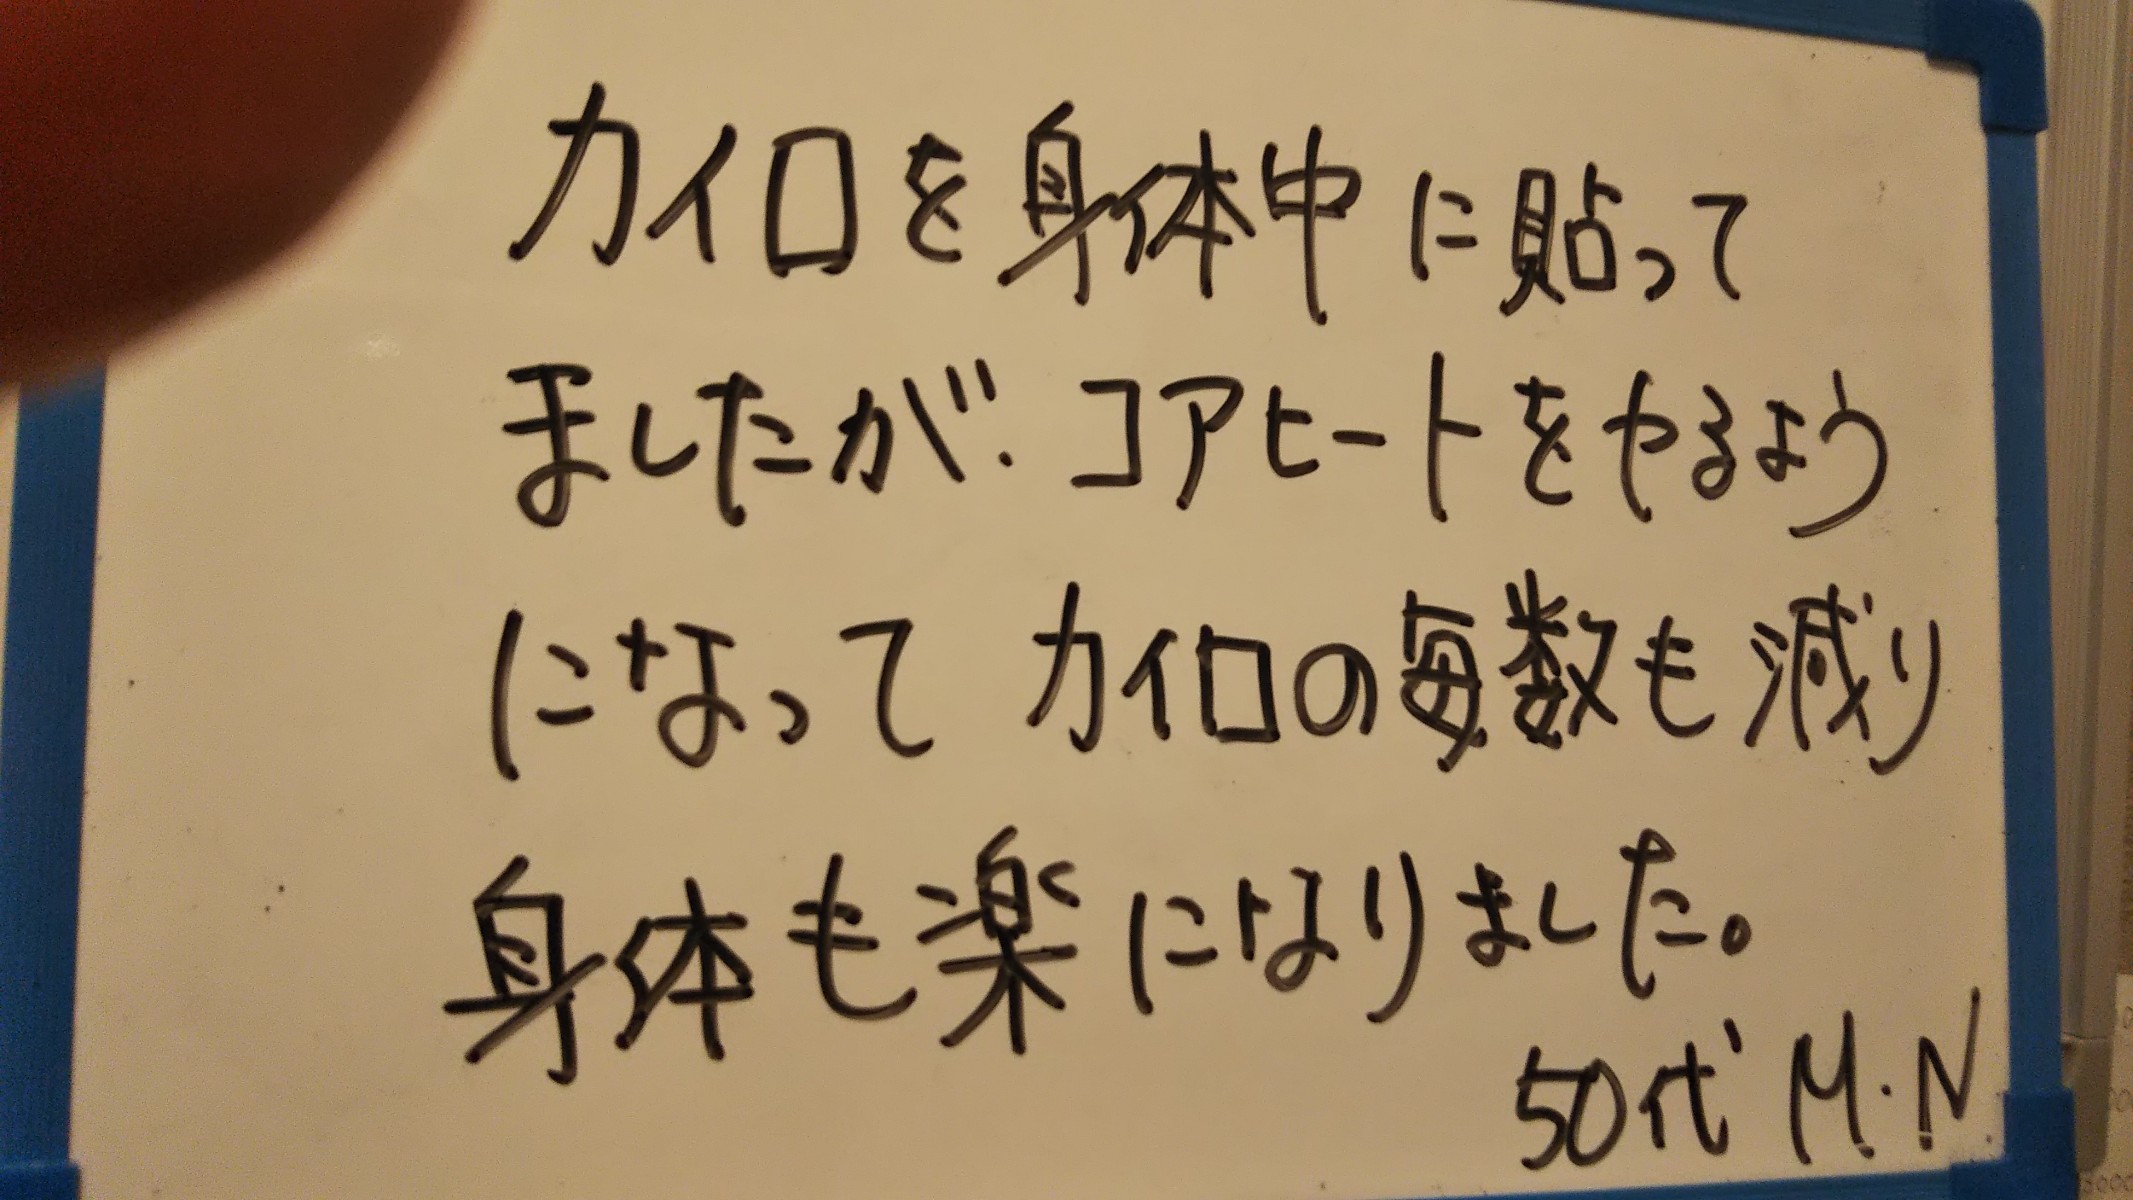 カイロを身体中に貼って
ましたが、コアヒートをやるよう
になって カイロの毎数も減り
身体も楽になりました。
50代 M.N